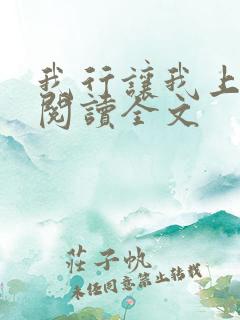 我行讓我上
閱讀全文
莊子帆
未經同意禁止轉載